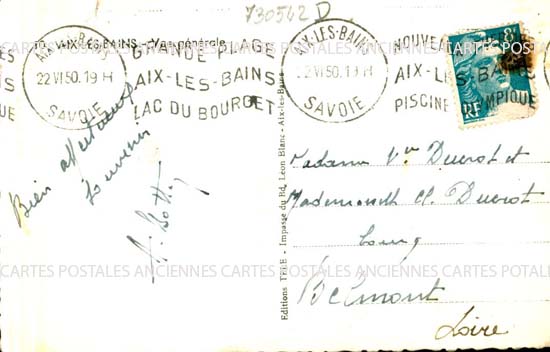 730542 D
10. AIX-LES-BAINS - Vue générale
AIX-LES-BAINS
22 VI 50. 19 H
SAVOIE
GRANDE PLAGE
AIX-LES-BAINS
LAC DU BOURGET
AIX-LES-BAINS
22 VI 50. 19 H
SAVOIE
NOUVEAU
AIX-LES-BAINS
PISCINE OLYMPIQUE
8F
RF
Bien affectueux
Souvenir
Editions TELE - Impasse du Rd, Léon Blanc - Aix-les-Bains
Madame Vve Ducrot et
Mademoiselle Cl. Ducrot
bourg
Belmont
Loire
CARTES POSTALES ANCIENNES CARTES POSTALES ANCIENNES CARTES POTALE